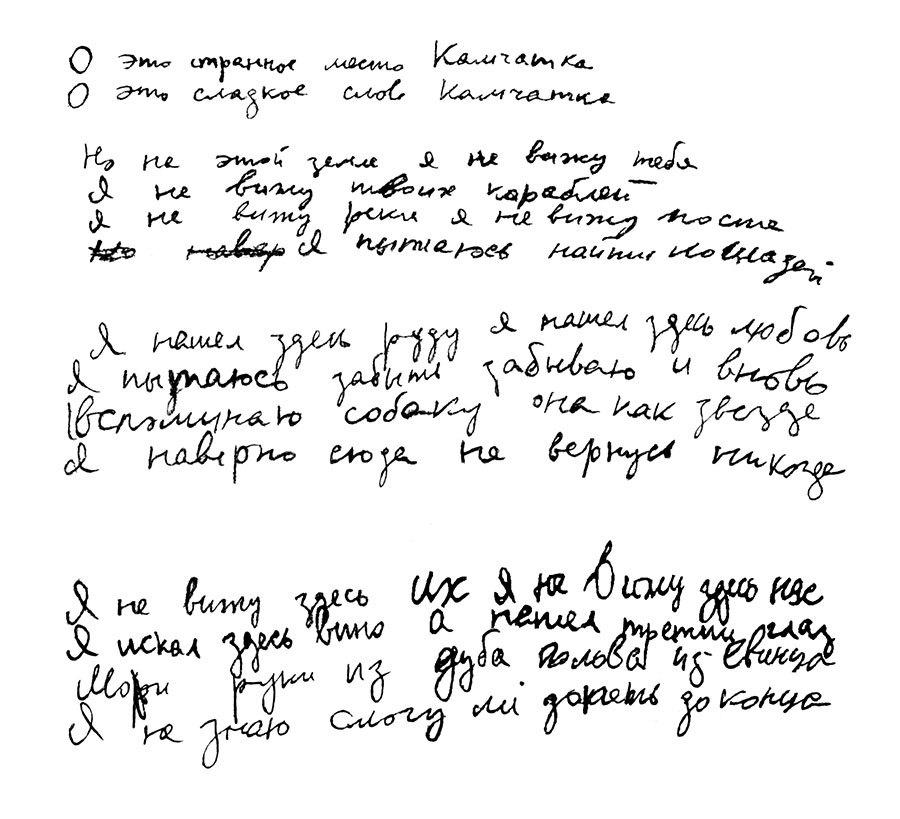 О это странное место Камчатка
О это сладкое слово Камчатка
Но на этой земле я не вижу тебя
Я не вижу твоих кораблей
Я не вижу реки я не вижу моста
Я пытаюсь найти лошадей
Я нашел здесь руду я нашел здесь любовь
Я пытаюсь забыть забываю и вновь
Вспоминаю собаку она как звезда
Я наверно сюда не вернусь никогда
Я не вижу здесь их я не вижу здесь нас
Я искал здесь вино а нашел третий глаз
Мои руки из дуба голова из свинца
Я не знаю смогу ли допеть до конца